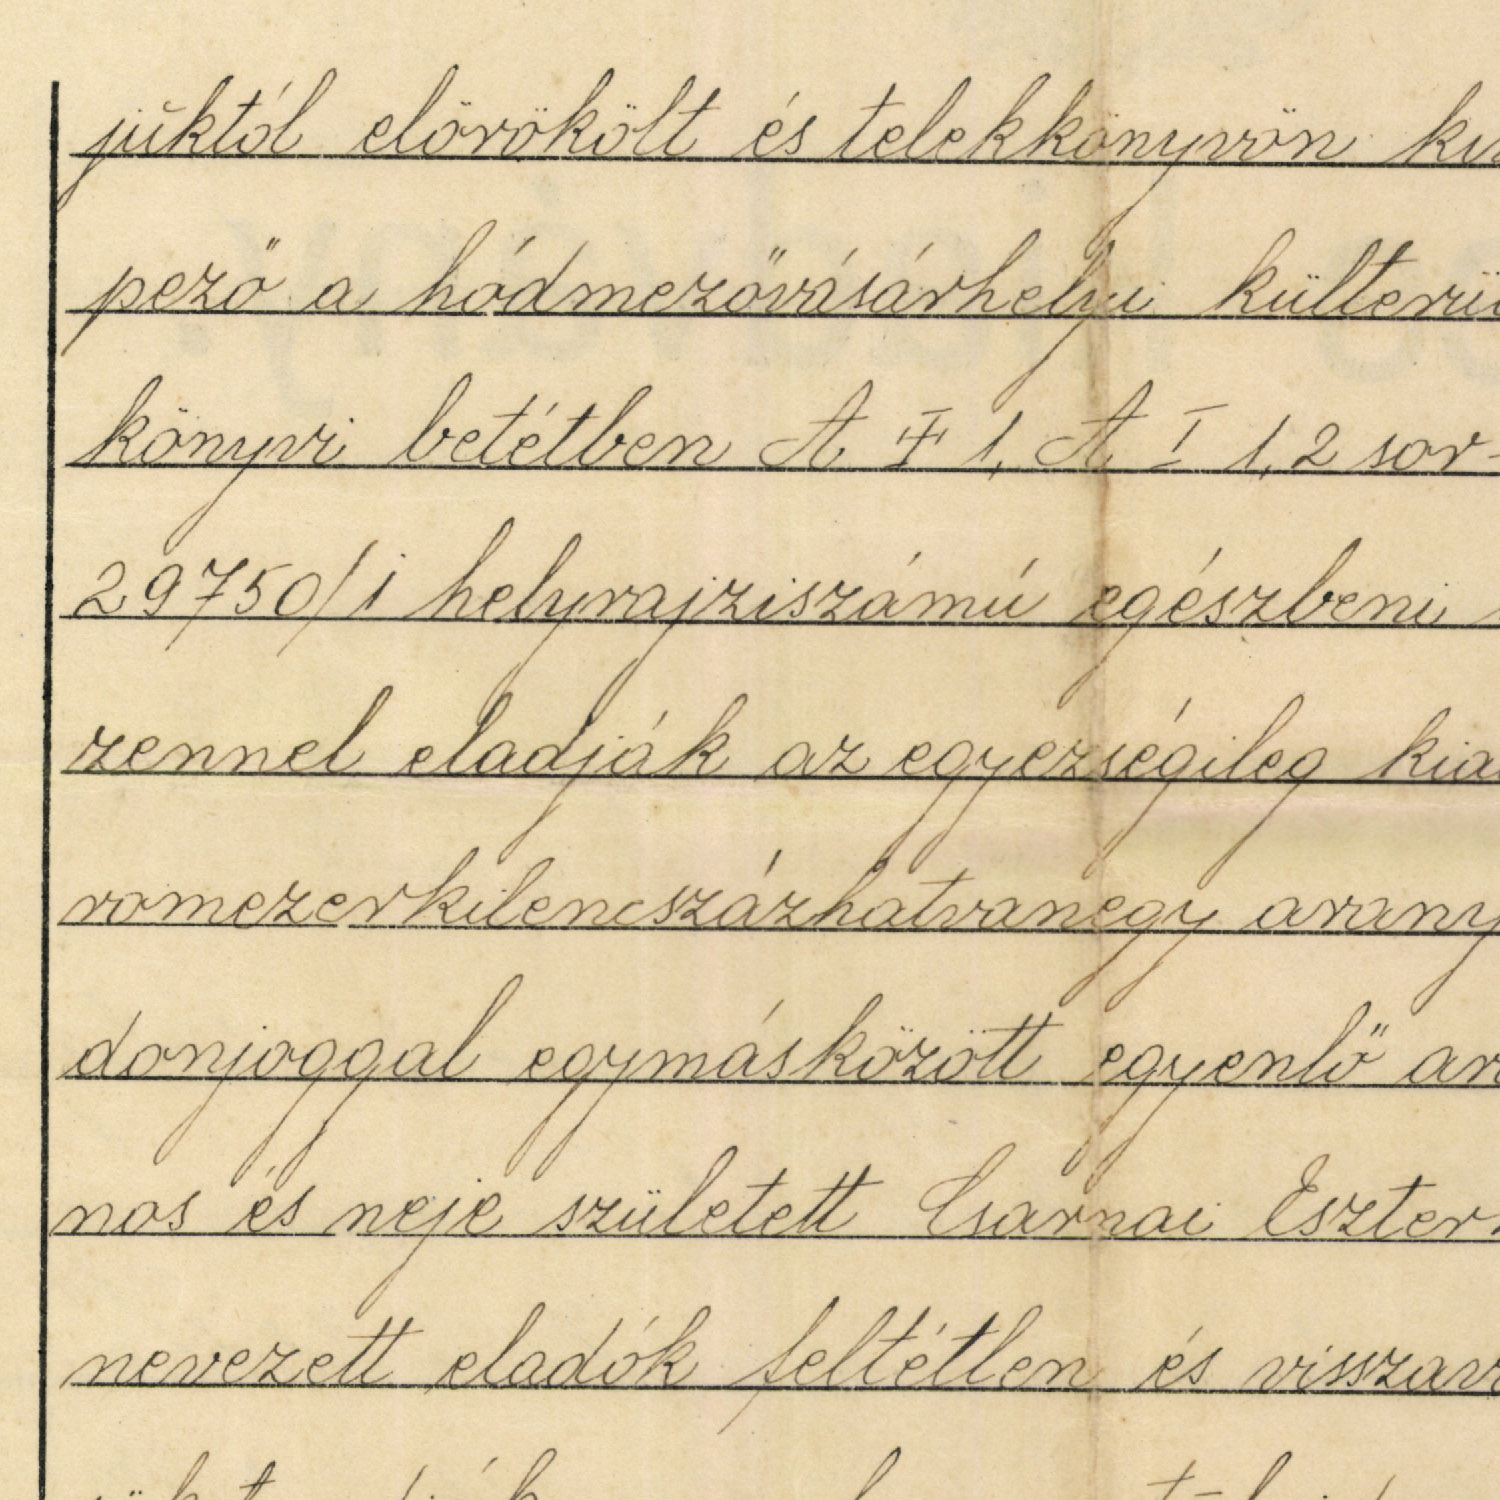 jüktől elörökölt és telekkönyvön
pező a hódmezővásárhelyi
könyvi betétben A I 1, A I 1, 2 sor-
29750/1 helyrajziszámú egészbeni
zennel eladják az egyezségileg
romezerkilencszázhatvanegy arany
donjoggal egymásközött egyenlő
nos és neje született Csarnai Eszter
nevezett eladók feltétlen és